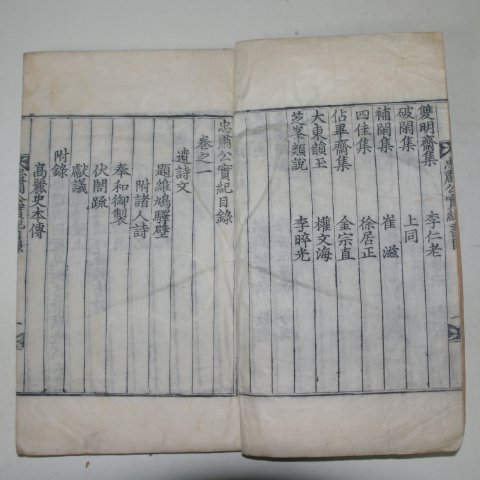 雙明齋集 李仁老
破閑集 上同
補閑集 崔滋
四佳集 徐居正
佔畢齋集 金宗直
大東韻玉 權文海
芝峯類說 李晬光
忠肅公實紀目錄
卷之一
遺詩文
題維鳩驛壁
附諸人詩
奉和御製
伏閤疏
獻議
附錄
高麗史本傳